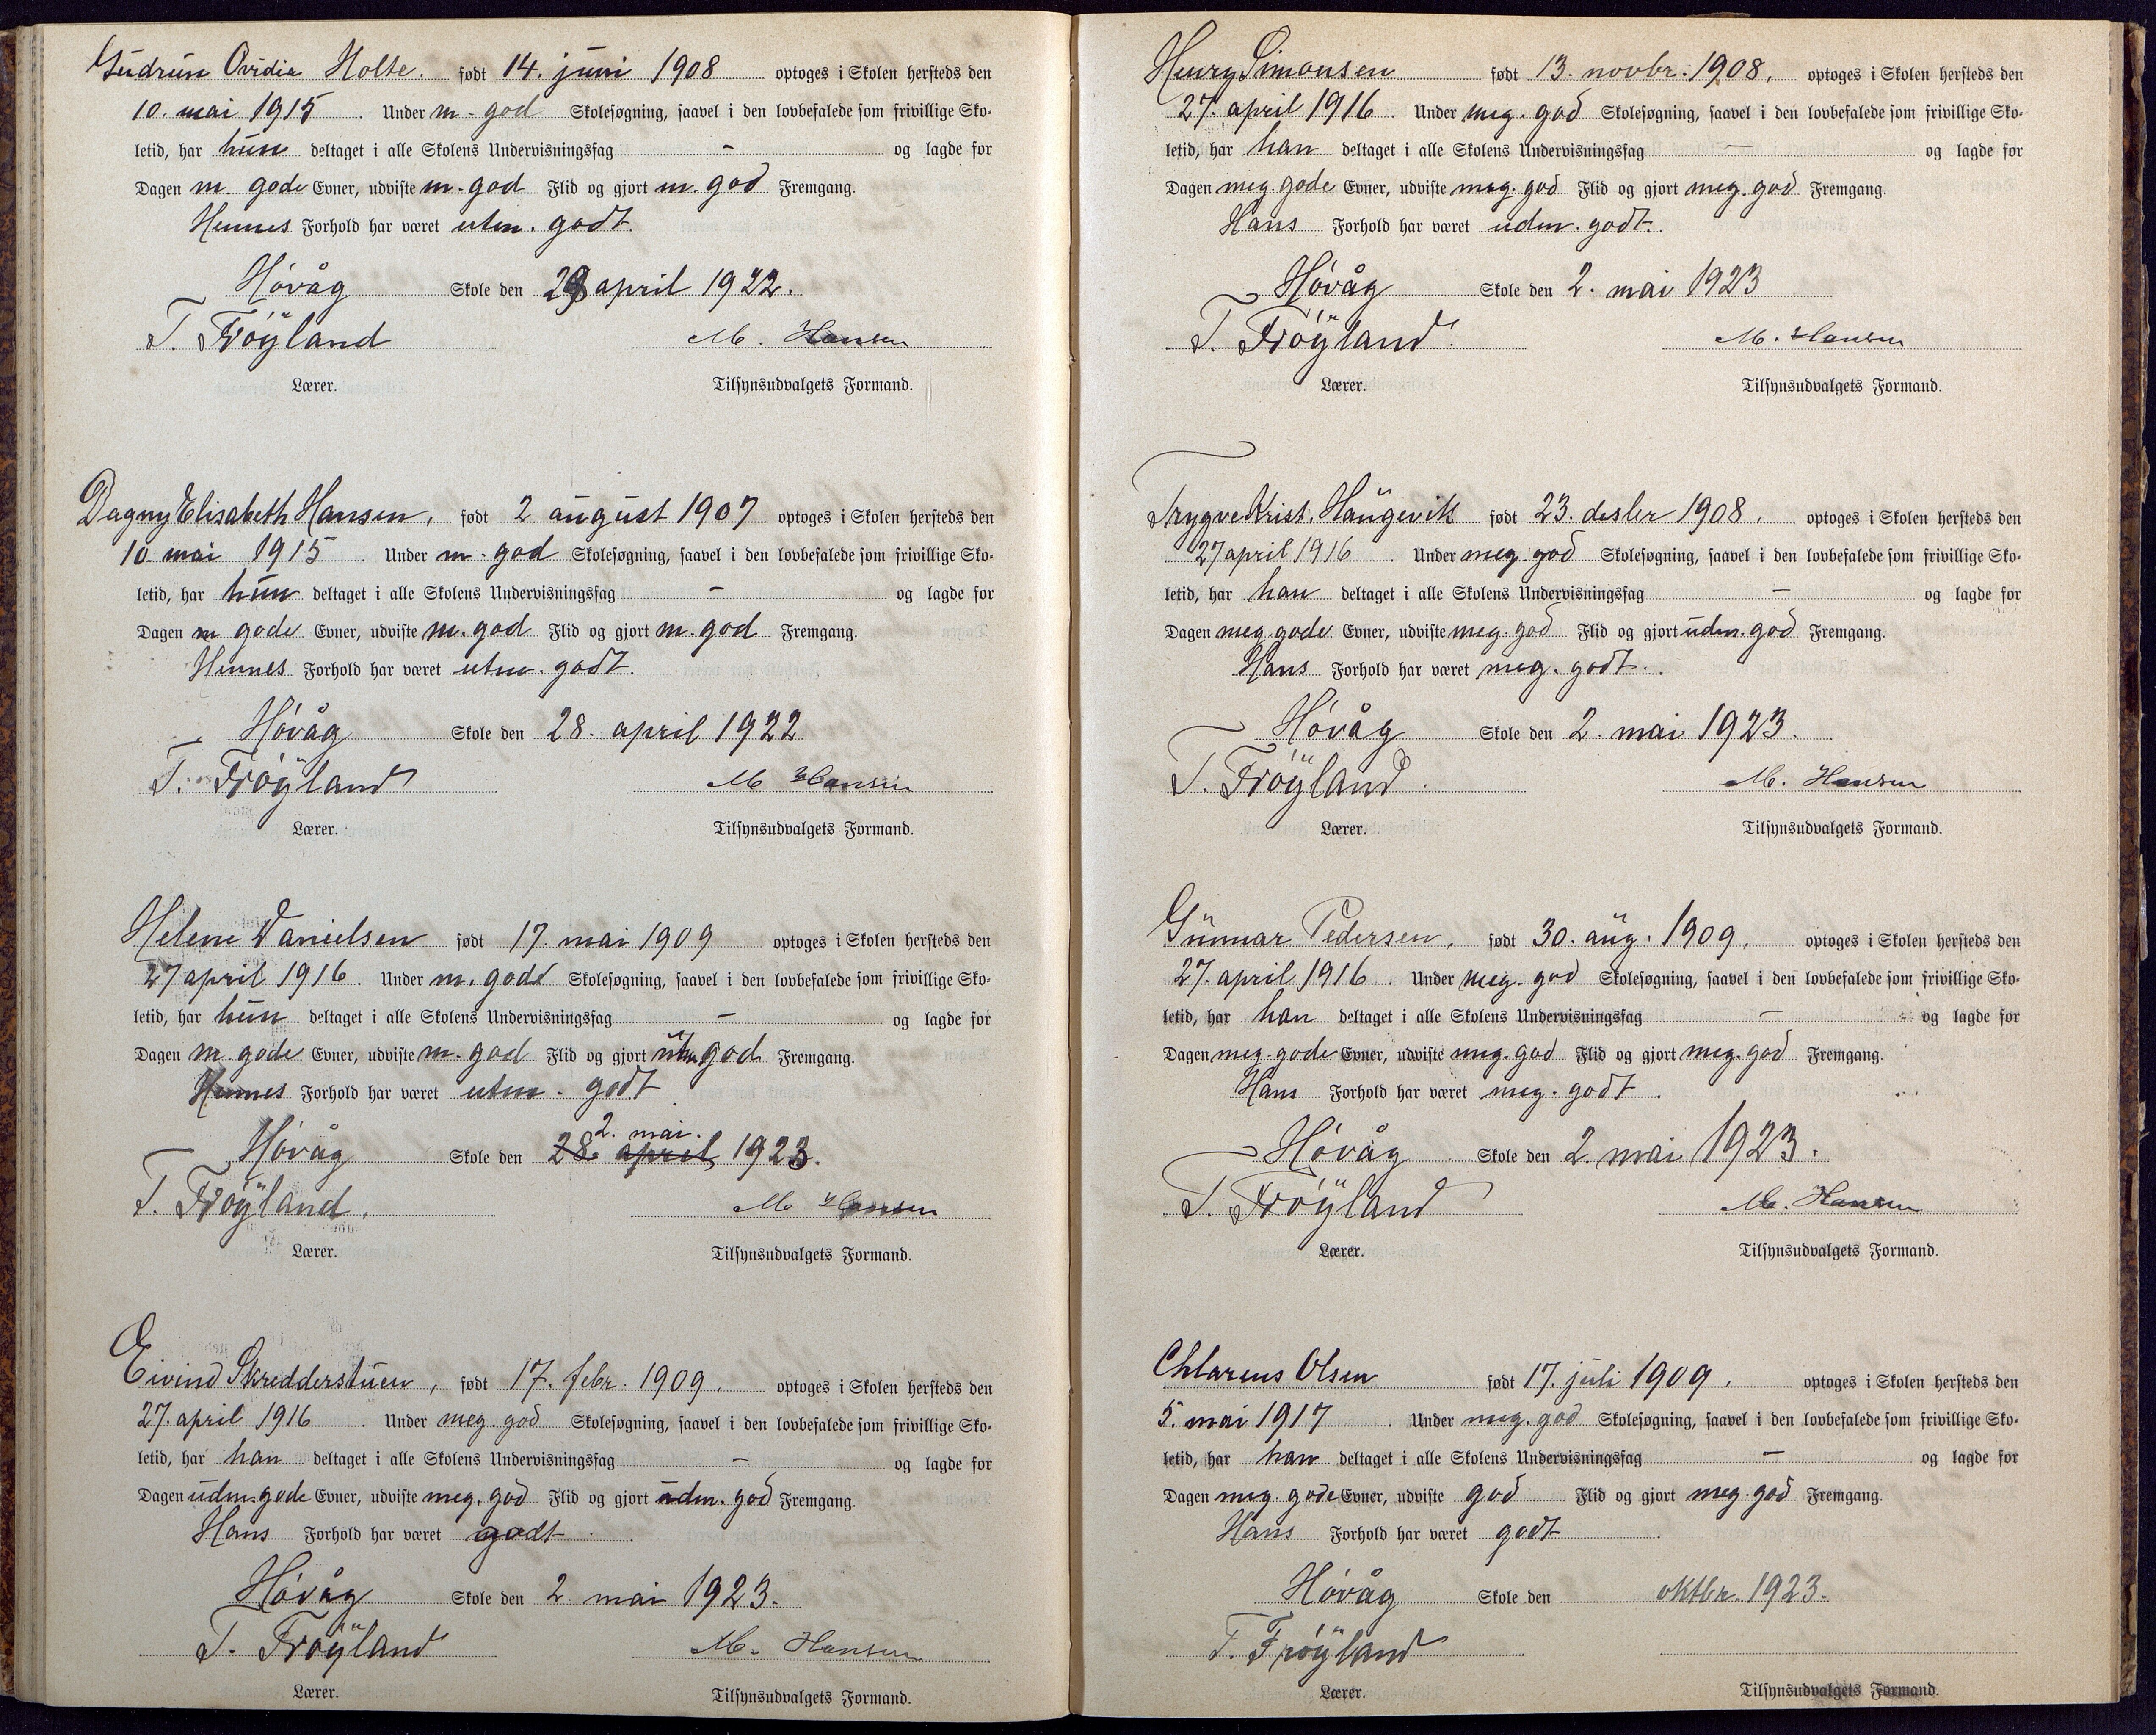 Gudrun Ovidia Holte. født 14. juni 1908 optoges i Skolen hersteds den
10. mai 1915. Under m. god Skolesøgning, saavel i den lovbefalede som frivillige Sko-
letid, har hun deltaget i alle Skolens Undervisningsfag - og lagde for
Dagen m. gode Evner, udviste m. god Flid og gjort m. god Fremgang.
Hennes Forhold har været utm. godt.
Høvåg Skole den 28 april 1922.
T. Frøyland M. Hansen
Lærer. Tilsynsudvalgets Formand.
Dagny Elisabeth Hansen, født 2 august 1907 optoges i Skolen hersteds den
10 mai 1915. Under m. god Skolesøgning, saavel i den lovbefalede som frivillige Sko-
letid, har hun deltaget i alle Skolens Undervisningsfag - og lagde for
Dagen m gode Evner, udviste m. god Flid og gjort m. god Fremgang.
Hennes Forhold har været utm. godt.
Høvåg Skole den 28. april 1922
T. Frøyland M Hansen
Lærer. Tilsynsudvalgets Formand.
Helene Danielsen født 17. mai 1909 optoges i Skolen hersteds den
27 april 1916. Under m. godt Skolesøgning, saavel i den lovbefalede som frivillige Sko-
letid, har hun deltaget i alle Skolens Undervisningsfag - og lagde for
Dagen m. gode Evner, udviste m. god Flid og gjort utm. god Fremgang.
Hennes Forhold har været utm. godt
2. mai.
Høvåg Skole den 28. april 1923.
T. Frøyland. M Hansen
Lærer. Tilsynsudvalgets Formand.
Eivind Skredderstuen, født 17. febr. 1909. optoges i Skolen hersteds den
27. april 1916. Under meg. god Skolesøgning, saavel i den lovbefalede som frivillige Sko-
letid, har han deltaget i alle Skolens Undervisningsfag - og lagde for
Dagen udm. gode Evner, udviste meg. god Flid og gjort udm. god Fremgang.
Hans Forhold har været godt.
Høvåg Skole den 2. mai 1923.
T. Frøyland M. Hansen
Lærer. Tilsynsudvalgets Formand.
Henry Simonsen født 13. novbr. 1908. optoges i Skolen hersteds den
27. april 1916. Under meg. god Skolesøgning, saavel i den lovbefalede som frivillige Sko-
letid, har han deltaget i alle Skolens Undervisningsfag - og lagde for
Dagen meg. gode Evner, udviste meg. god Flid og gjort meg. god Fremgang.
Hans Forhold har været udm. godt.
Høvåg Skole den 2. mai 1923
T. Frøyland. M. Hansen
Lærer. Tilsynsudvalgets Formand.
Trygve Krist. Haugevik født 23. desbr 1908. optoges i Skolen hersteds den
27 april 1916. Under meg. god Skolesøgning, saavel i den lovbefalede som frivillige Sko-
letid, har han deltaget i alle Skolens Undervisningsfag - og lagde for
Dagen meg. gode Evner, udviste meg. god Flid og gjort udm. god Fremgang.
Hans Forhold har været meg. godt.
Høvåg Skole den 2. mai 1923.
T. Frøyland. M. Hansen
Lærer. Tilsynsudvalgets Formand.
Gunnar Pedersen, født 30. aug. 1909. optoges i Skolen hersteds den
27. april 1916. Under meg. god Skolesøgning, saavel i den lovbefalede som frivillige Sko-
letid, har han deltaget i alle Skolens Undervisningsfag - og lagde for
Dagen meg. gode Evner, udviste meg. god Flid og gjort meg. god Fremgang.
Hans Forhold har været meg. godt.
Høvåg Skole den 2. mai 1923.
T. Frøyland M. Hansen
Lærer. Tilsynsudvalgets Formand.
Chlarens Olsen født 17. juli 1909. optoges i Skolen hersteds den
5. mai 1917. Under meg. god Skolesøgning, saavel i den lovbefalede som frivillige Sko-
letid, har han deltaget i alle Skolens Undervisningsfag - og lagde for
Dagen meg. gode Evner, udviste god Flid og gjort meg. god Fremgang.
Hans Forhold har været godt.
Høvåg Skole den oktbr. 1923.
T. Frøyland
Lærer. Tilsynsudvalgets Formand.